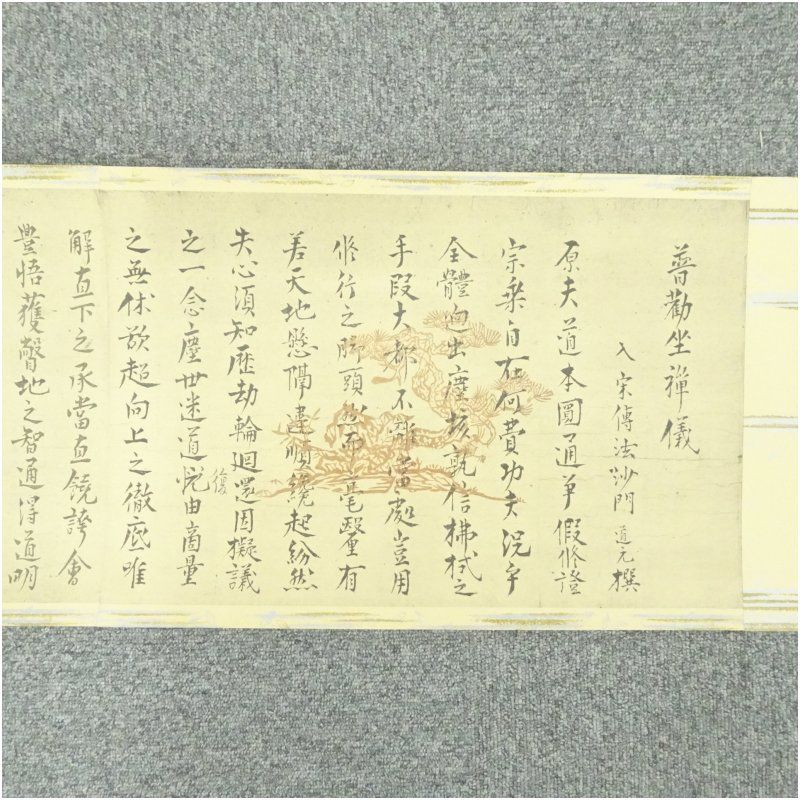 普勸坐禪儀
入宋傳法沙門 道元 撰
原夫道本圓通爭假修證
宗乘自在何費功夫況乎
全體迥出塵埃孰信拂拭之
手段大都不離當處豈用
修行之脚頭然而毫釐有
差天地懸隔違順纔起紛然
失心須知歷劫輪廻還因擬議
之一念塵世迷道復由商量
之無休欲超向上之徹底唯
解直下之承當直饒誇會
豐悟獲瞥地之智通得道明